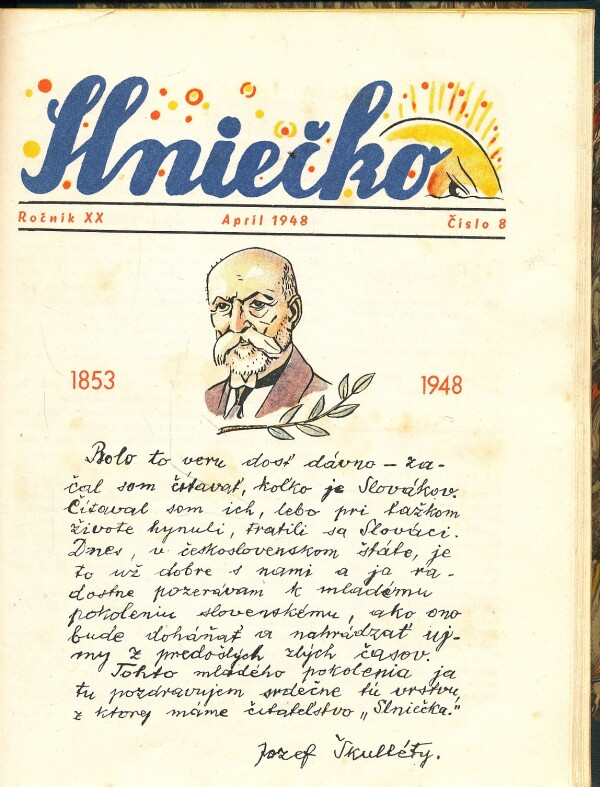 Slniečko
Ročník XX April 1948 Číslo 8
1853 1948
Bolo to veru dosť dávno – za-
čal som čítavať, koľko je Slovákov.
Čítaval som ich, lebo pri ťažkom
živote hynuli, tratili sa Slováci.
Dnes, v československom štáte, je
to už dobre s nami a ja ra-
dostne pozerávam k mladému
pokoleniu slovenskému, ako ono
bude doháňať a nahrádzať uj-
my z predošlých zlých časov.
Tohto mladého pokolenia ja
tu pozdravujem srdečne tú vrstvu,
z ktorej máme čitateľstvo „Slniečka."
Jozef Škultéty.